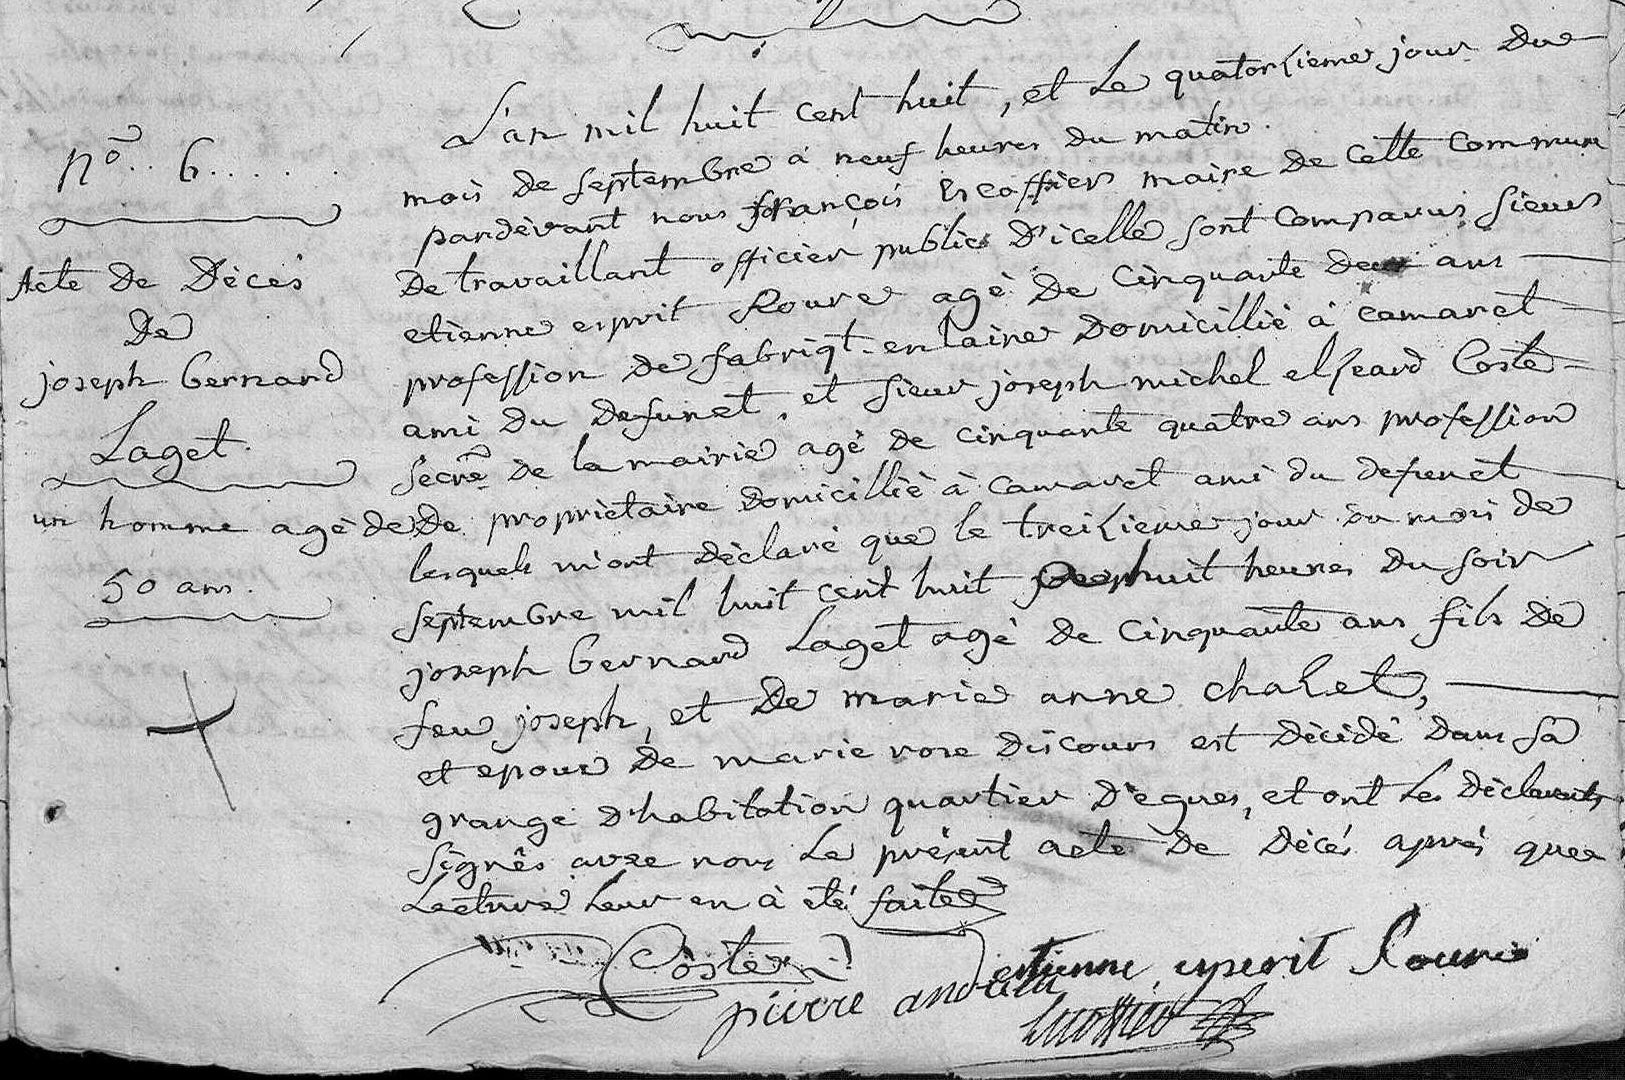 n° 6
Acte de Décès
De
joseph bernard
Laget.
un homme agé de
50 ans.
L'an mil huit cent huit, et Le quatorzieme jour du
mois de septembre à neuf heures du matin.
pardevant nous françois Escoffier maire de cette commune
De travaillant officier public D'icelle sont comparus, sieurs
etienne esprit Roure agé De cinquante deux ans
profession De fabriqt. en laine Domicillié à camaret
ami du defunct, et sieur joseph michel elzeard Coste
secre. de la mairie agé de cinquante quatre ans profession
De propriétaire Domicillié à camaret ami du defunct
lesquels m'ont déclaré que le treizieme jour du mois de
septembre mil huit cent huit huit heures du soir
joseph bernard Laget agé de cinquante ans fils de
feu joseph, et De marie anne chazet,
et epoux De marie rose discours est décédé dans sa
grange d'habitation quartier D'egues, et ont Les déclarants
signés avec nous Le présent acte De décès après que
Lecture leur en à été faite
Coste
etienne esprit Roure
pierre